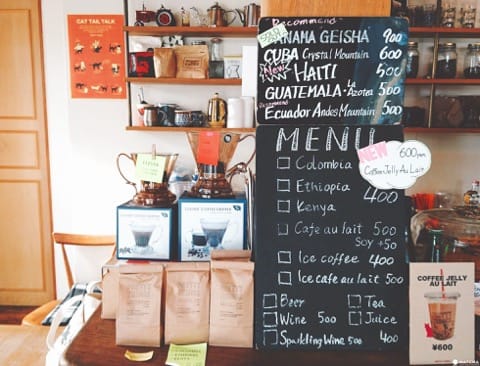 CAT TAIL TALK
Recommend
PANAMA GEISHA 900
CUBA Crystal Mountain 600
New HAITI 600
GUATEMALA - La Azotea 500
Recommend
ECUADOR Andes Mountain 500
MENU
Colombia
Ethiopia 400
Kenya
Cafe au lait 500
Soy +50
Ice coffee 400
Ice cafe au lait 500
Beer
Tea
Wine 500
Juice
Sparkling Wine 500 400
NEW
600yen
Coffee Jelly
Au Lait
CLEVER COFFEE DRIPPER
COFFEE JELLY
AU LAIT
¥600
MATCHA